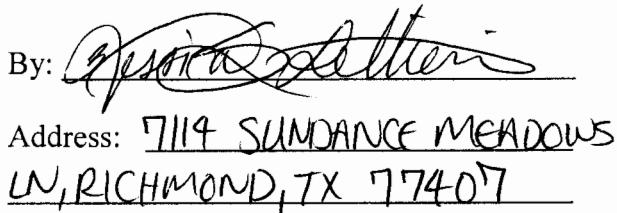 By: Jessica
Address: 7114 SUNDANCE MEADOWS
LN, RICHMOND, TX 77407